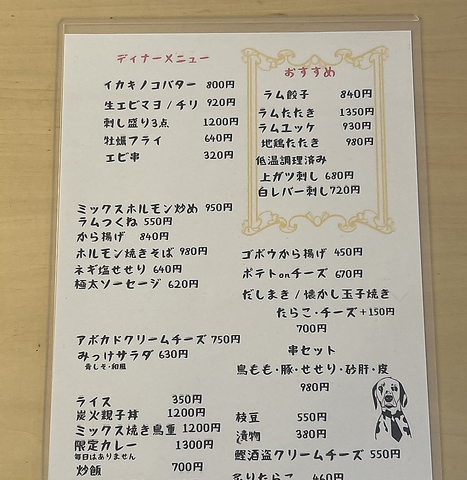 ディナーメニュー
イカキノコバター 800円
生エビマヨ/チリ 920円
刺し盛り3点 1200円
牡蠣フライ 640円
エビ串 320円
おすすめ
ラム餃子 840円
ラムたたき 1350円
ラムユッケ 930円
地鶏たたき 980円
低温調理済み
上ガツ刺し 680円
白レバー刺し720円
ミックスホルモン炒め 950円
ラムつくね 550円
から揚げ 840円
ホルモン焼きそば 980円
ネギ塩せせり 640円
極太ソーセージ 620円
ゴボウから揚げ 450円
ポテトonチーズ 670円
だしまき/懐かし玉子焼き
たらこ・チーズ+150円
700円
アボカドクリームチーズ 750円
みっけサラダ 630円
青しそ・和風
串セット
鳥もも・豚・せせり・砂肝・皮
980円
ライス 350円
炭火親子丼 1200円
ミックス焼き鳥重 1200円
限定カレー 1300円
毎日はありません
炒飯 700円
枝豆 550円
漬物 380円
鰹酒盗クリームチーズ 550円
炙りたらこ 460円